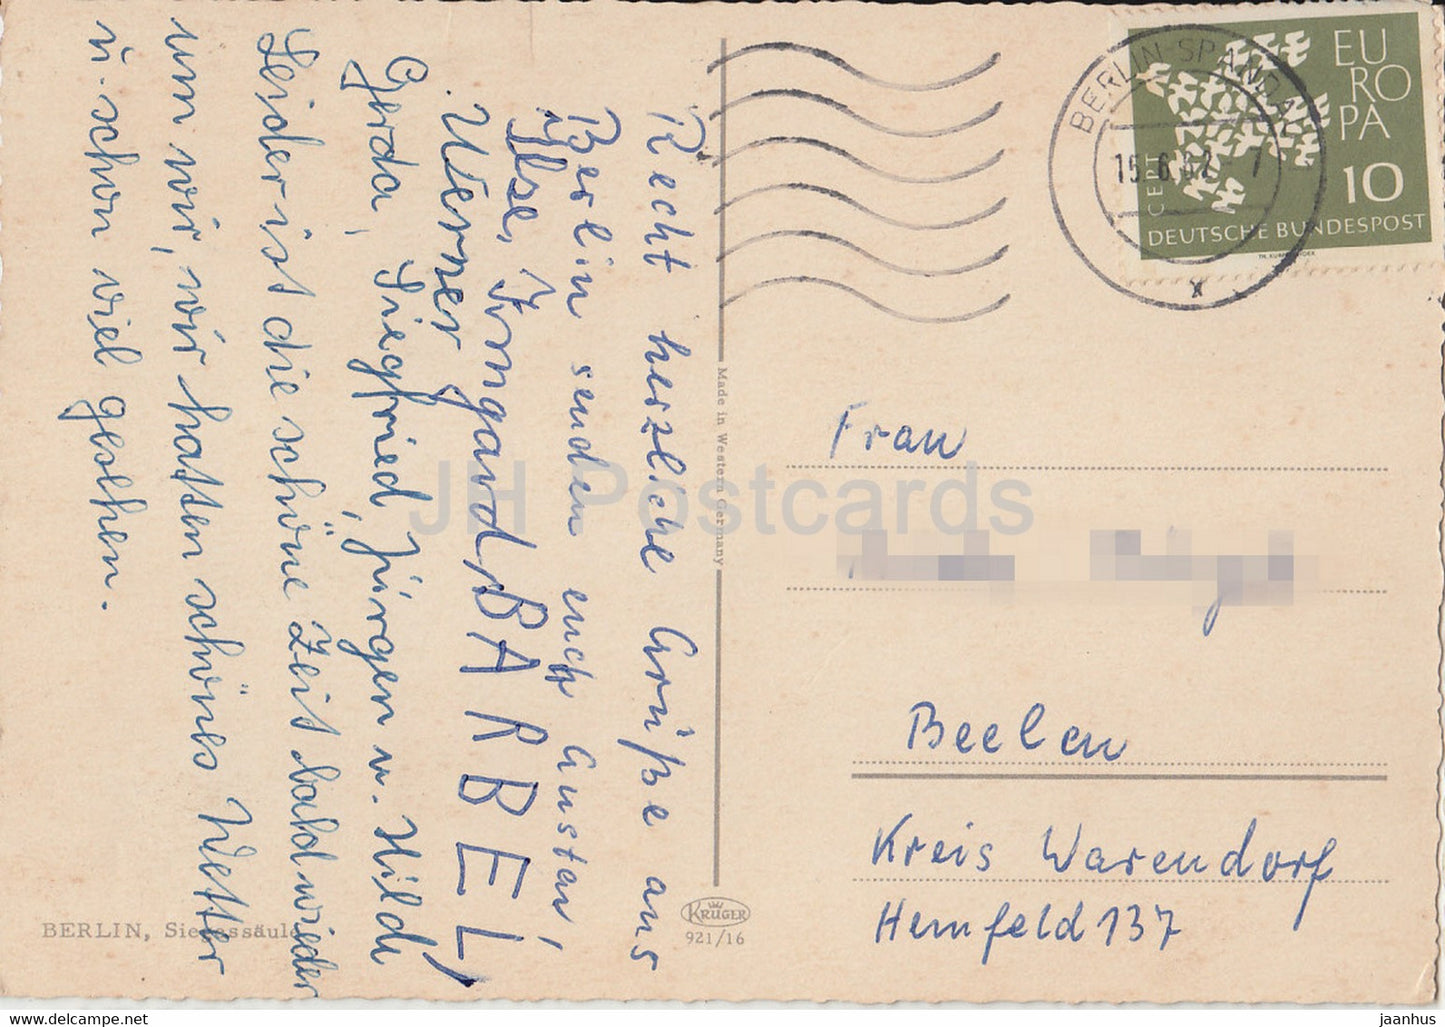 Recht herzliche Grüße aus
Berlin senden euch Gustav,
Ilse, Irmgard, BARBEL,
Werner
Gerda, Siegfried, Jürgen u. Hilde
Leider ist die schöne Zeit bald wieder
um wir, wir hatten schönes Wetter
u. schon viel gesehen.
BERLIN, Siegessäule
Made in Western Germany
KRÜGER
921/16
BERLIN SPANDAU
15.6.62
EUROPA
CEPT
10
DEUTSCHE BUNDESPOST
Frau
Beelen
Kreis Warendorf
Hemfeld 137
JH Postcards
www.delcampe.net
jaanhus